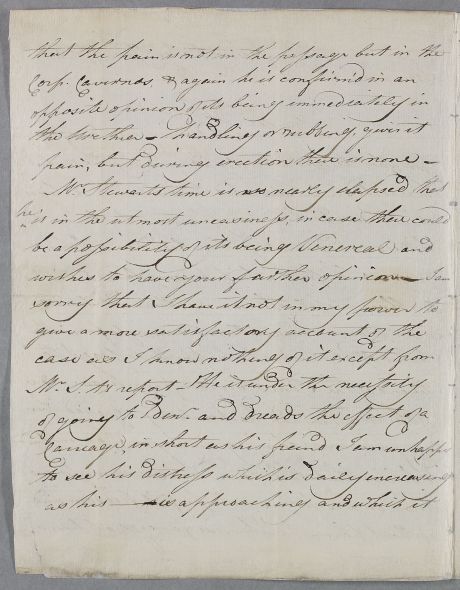 that the pain is not in the passage but in the
Corp. Cavernos. & again he is confirmed in an
opposite opinion of its being immediately in
the Urethra — Handling or rubbing, gives it
pain, but during erection there is none —
Mr. Stewarts time is so nearly elapsed that
he is in the utmost uneasiness, in case there could
be a possibility of its being Venereal and
wishes to have your further opinion — I am
sorry that I have it not in my power to
give a more satisfactory account of the
case as I know nothing of it except from
Mr. S.ts report — He is under the necessity
of going to Edinr. and dreads the effect of a
Carriage, in short as his freind I am unhappy
to see his distress which is daily encreasing
as his — is approaching and which it